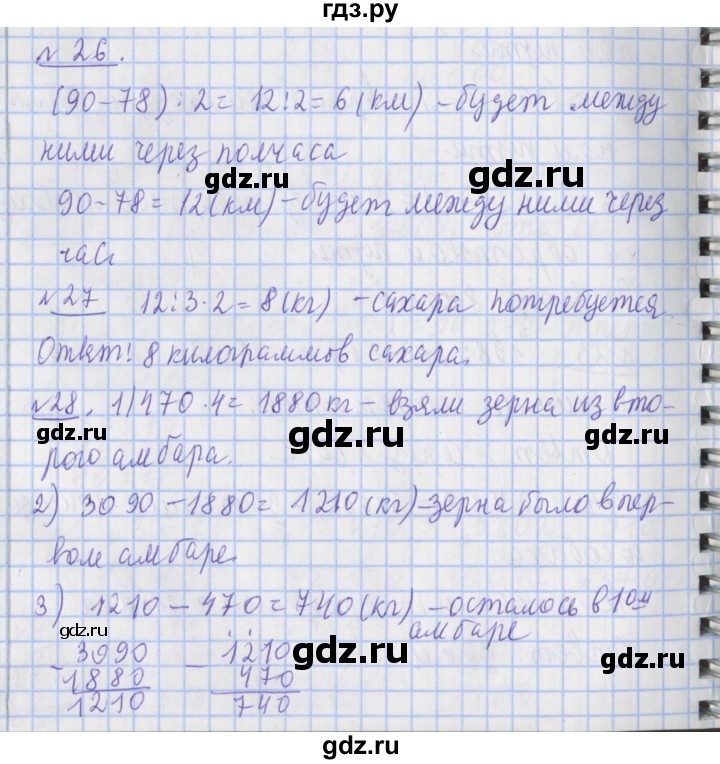 гдз.ру
№ 26.
(90-78):2= 12:2=6(км) -будет между
ними через полчаса
gdz.ru
90-78= 12(км)-будет между ними через
час.
gdz.ru
№27 12:3·2=8(кг) -сахара потребуется
Ответ: 8 килограммов сахара.
№28. 1) 470·4= 1880 кг- взяли зерна из вто-
gdz.ru
рого амбара.
2) 3090-1880= 1210(кг)-зерна было в пер-
gdz.ru
вом амбаре.
3) 1210-470=740(кг) -осталось в 1ом
амбаре
gdz.ru
3090 1210
- 1880 - 470
1210 740
gdz.ru
gdz.ru